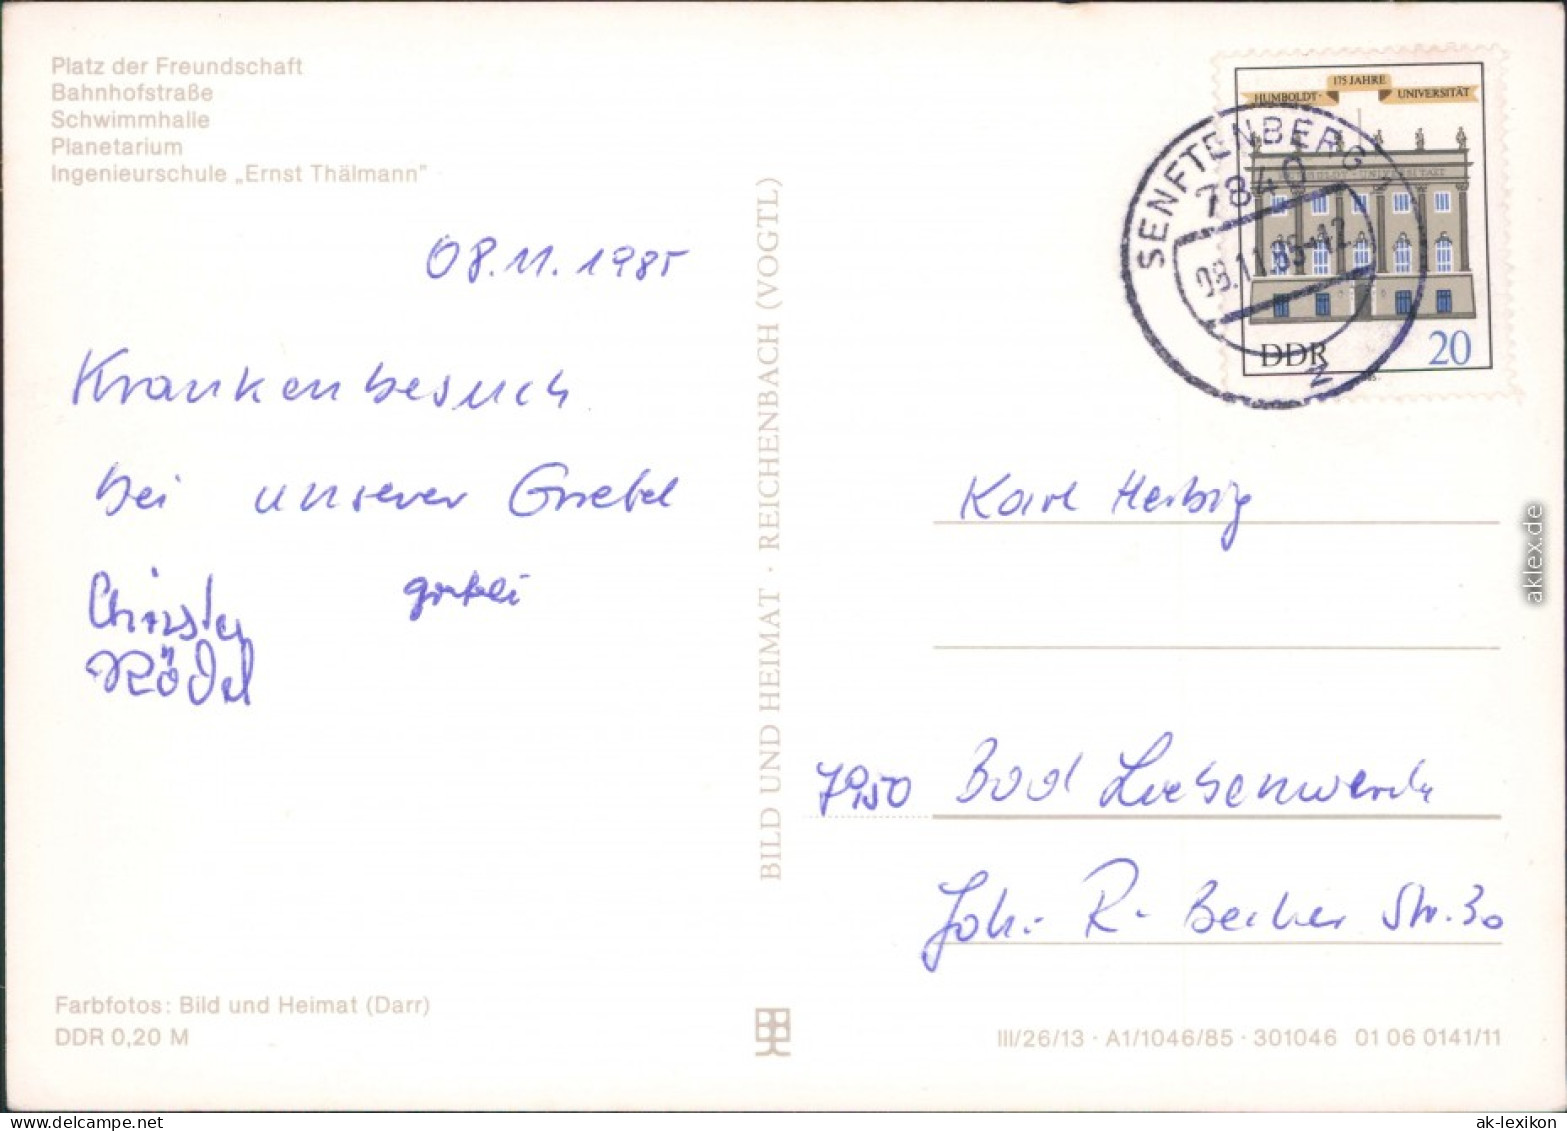 Platz der Freundschaft
Bahnhofstraße
Schwimmhalle
Planetarium
Ingenieurschule „Ernst Thälmann"
08.11.1985
Krankenbesuch
bei unserer
Rödel
BILD UND HEIMAT · REICHENBACH (VOGTL)
175 JAHRE
HUMBOLDT- UNIVERSITÄT
DDR 20
SENFTENBERG
7840
08.11.85-12
Karl Herbig
7950 Bad Liebenwerda
Joh. R. Becher Str. 30
Farbfotos: Bild und Heimat (Darr)
DDR 0,20 M
III/26/13 · A1/1046/85 · 301046 01 06 0141/11
aklex.de
www.delcampe.net
ak-lexikon